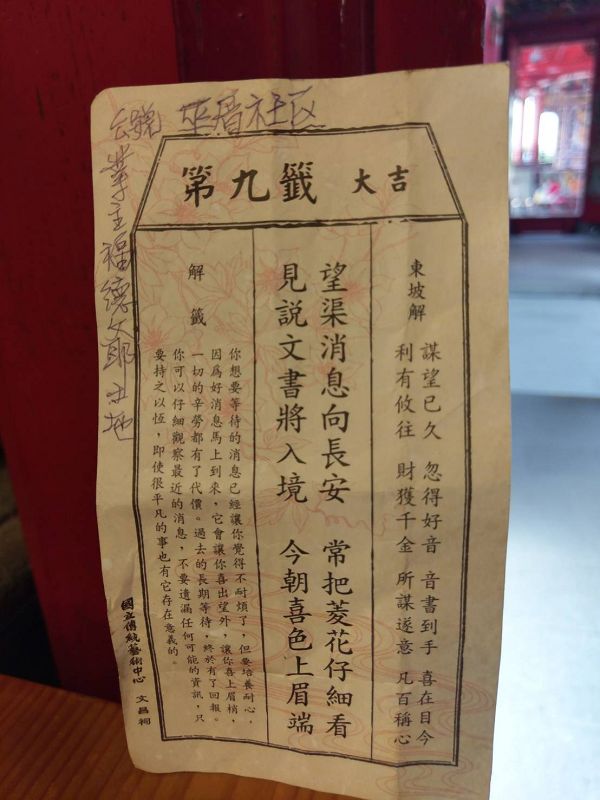 社区
主福德
第九籤 大吉
東坡解
謀望已久 忽得好音 音書到手 喜在目今
利有攸往 財獲千金 所謀遂意 凡百稱心
望渠消息向長安 常把菱花仔細看
見說文書將入境 今朝喜色上眉端
解籤
你想要等待的消息已經讓你覺得不耐煩了，但要培養耐心，
因為好消息馬上到來，它會讓你喜出望外，讓你喜上眉梢，
一切的辛勞都有了代價。過去的長期等待，終於有了回報。
你可以仔細觀察最近的消息，不要遺漏任何可能的資訊，只
要持之以恆，即使很平凡的事也有它存在意義的。
國立傳統藝術中心 文昌祠